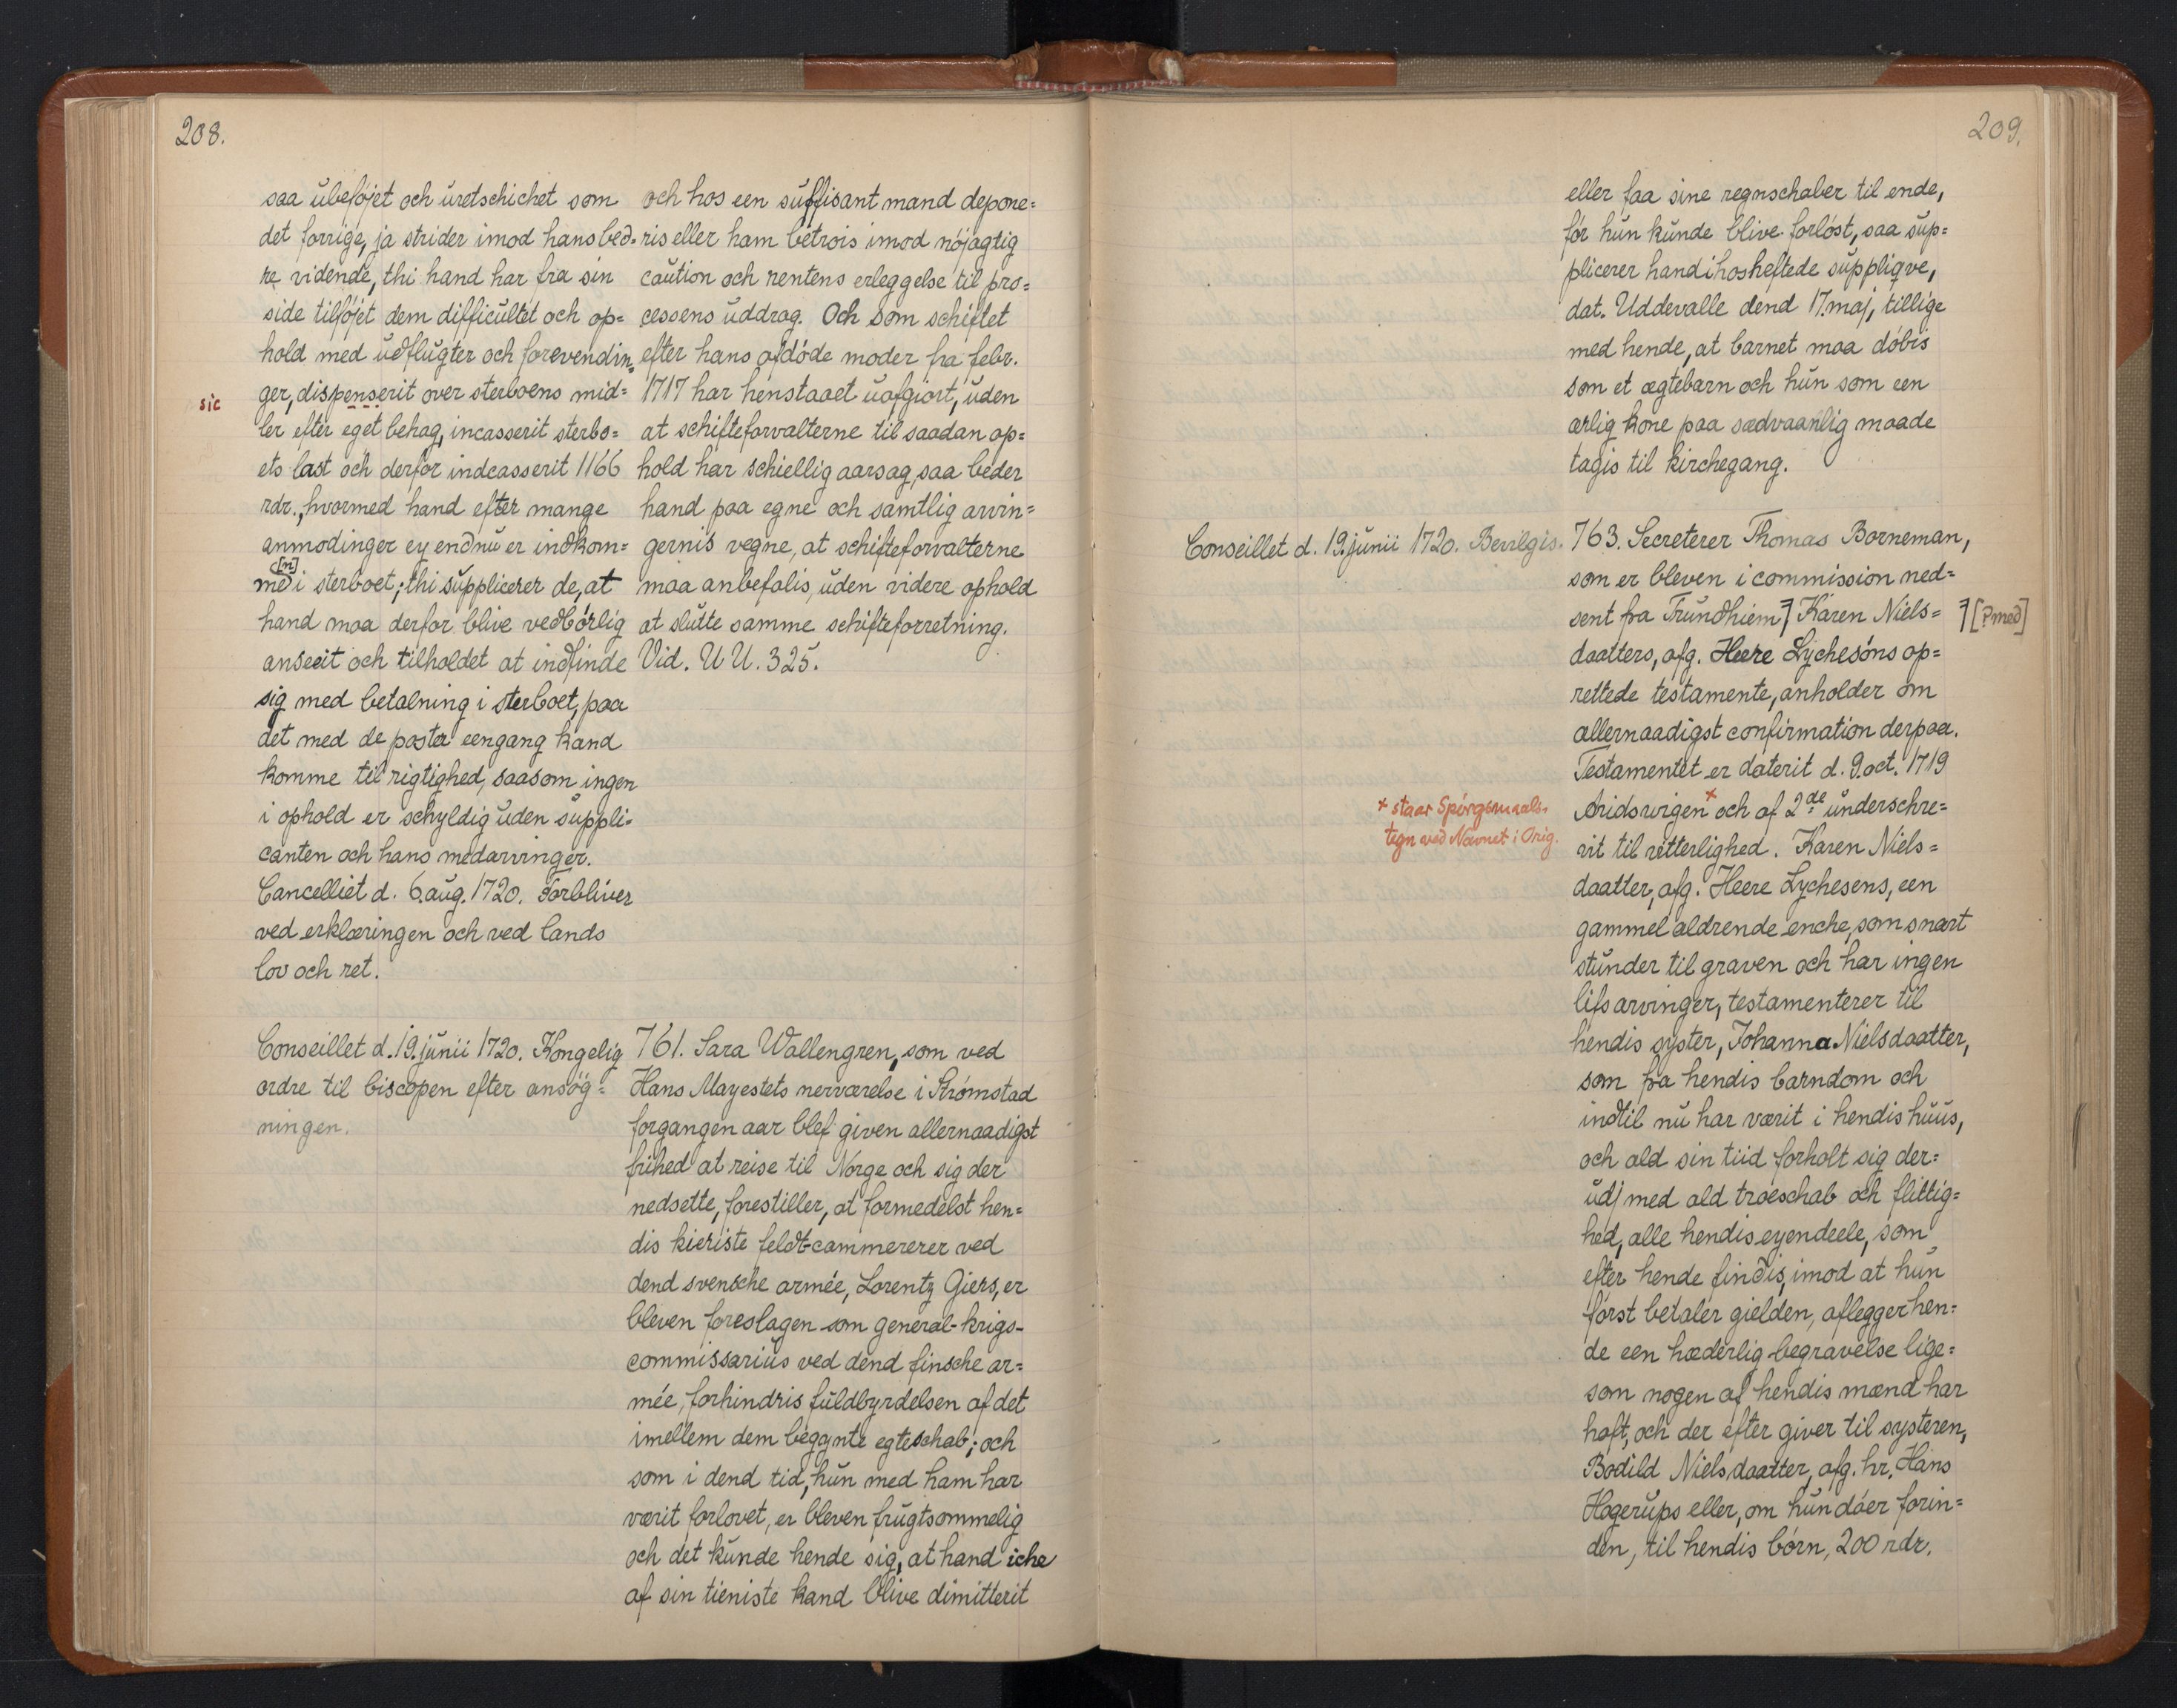 208.
saa ubeføjet och uretschichet som
det forrige, ja strider imod hans bed-
re vidende, thi hand har fra sin
side tilføjet dem difficultet och op=
hold med udflugter och forevendin=
sic
ger, dispenserit over sterboens mid=
ler efter eget behag, incasserit sterbo=
ets last och derfor indcasserit 1166
rdr., hvormed hand efter mange
anmodinger ey endnu er indkom=
me[n] i sterboet; thi supplicerer de, at
hand maa derfor blive vedbørlig
anseeit och tilholdet at indfinde
sig med betalning i sterboet, paa
det med de poster eengang kand
komme til rigtighed, saasom ingen
i ophold er schyldig uden suppli=
canten och hans medarvinger.
Cancelliet d. 6. aug. 1720. Forbliver
ved erklæringen och ved lands
lov och ret.
Conseillet d. 19. junii 1720. Kongelig
ordre til biscopen efter ansøg=
ningen.
och hos een suffisant mand depone=
ris eller ham betrois imod nøjagtig
caution och rentens erleggelse til pro=
cessens uddrag. Och som schiftet
efter hans afdøde moder fra febr.
1717 har henstaaet uafgiort, uden
at schifteforvalterne til saadan op=
hold har schiellig aarsag, saa beder
hand paa egne och samtlig arvin=
gernis vegne, at schifteforvalterne
maa anbefalis, uden videre ophold
at slutte samme schifteforretning.
Vid. U U. 325.
761. Sara Wallengren, som ved
Hans Mayestets nerværelse i Strømstad
forgangen aar blef given allernaadigst
frihed at reise til Norge och sig der
nedsette, forestiller, at formedelst hen=
dis kieriste feldt-cammererer ved
dend svensche armée, Lorentz Giers, er
bleven foreslagen som general-krigs-
commissarius ved dend finsche ar=
mée, forhindris fuldbyrdelsen af det
imellem dem begynte egteschab; och
som i dend tid, hun med ham har
værit forlovet, er bleven frugtsommelig
och det kunde hende sig, at hand iche
af sin tieniste kand blive dimitterit
209.
eller faa sine regnschaber til ende,
før hun kunde blive forløst, saa sup=
plicerer hand i hosheftede suppliqve,
dat. Uddevalle dend 17. maj, tillige
med hende, at barnet maa døbis
som et ægtebarn och hun som een
ærlig kone paa sædvaanlig maade
tagis til kirchegang.
Conseillet d. 19. junii 1720. Bevilgis.
763. Secreterer Thomas Borneman,
som er bleven i commission ned=
sent fra Trundhiem ⁊ Karen Niels= ⁊ [? med]
daatters, afg. Heere Lychesøns op=
rettede testamente, anholder om
allernaadigst confirmation derpaa.
Testamentet er daterit d. 9. oct. 1719
Aridsvigen + och af 2de underschre=
+ staar Spørgsmaals-
tegn ved Navnet i Orig.
vit til vitterlighed. Karen Niels=
daatter, afg. Heere Lychesens, een
gammel aldrende enche, som snart
stunder til graven och har ingen
lifsarvinger, testamenterer til
hendis syster, Johanna Nielsdaatter,
som fra hendis barndom och
indtil nu har værit i hendis huus,
och ald sin tiid forholt sig der=
udj med ald troeschab och flittig=
hed, alle hendis eyendeele, som
efter hende findis, imod at hun
først betaler gielden, aflegger hen=
de een hæderlig begravelse lige=
som nogen af hendis mænd har
haft, och der efter giver til systeren,
Bodild Nielsdaatter, afg. hr. Hans
Hagerups eller, om hun døer forin=
den, til hendis børn, 200 rdr.